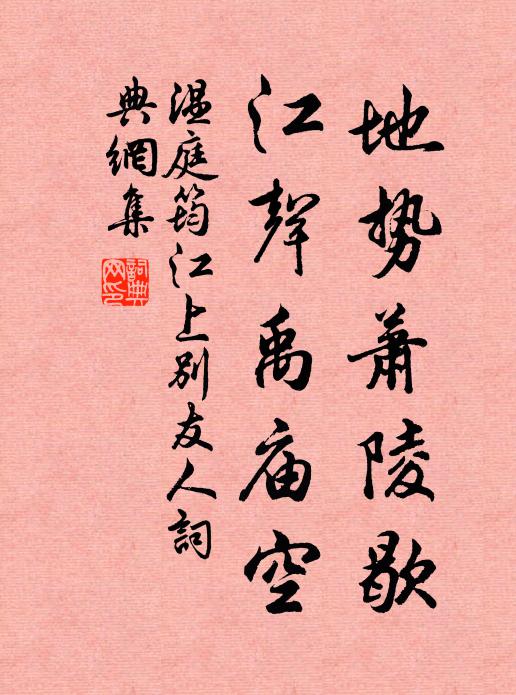 地势萧陵歇
江聲禹庙空
温庭筠江上别友人詞
典網集
詞典
网印